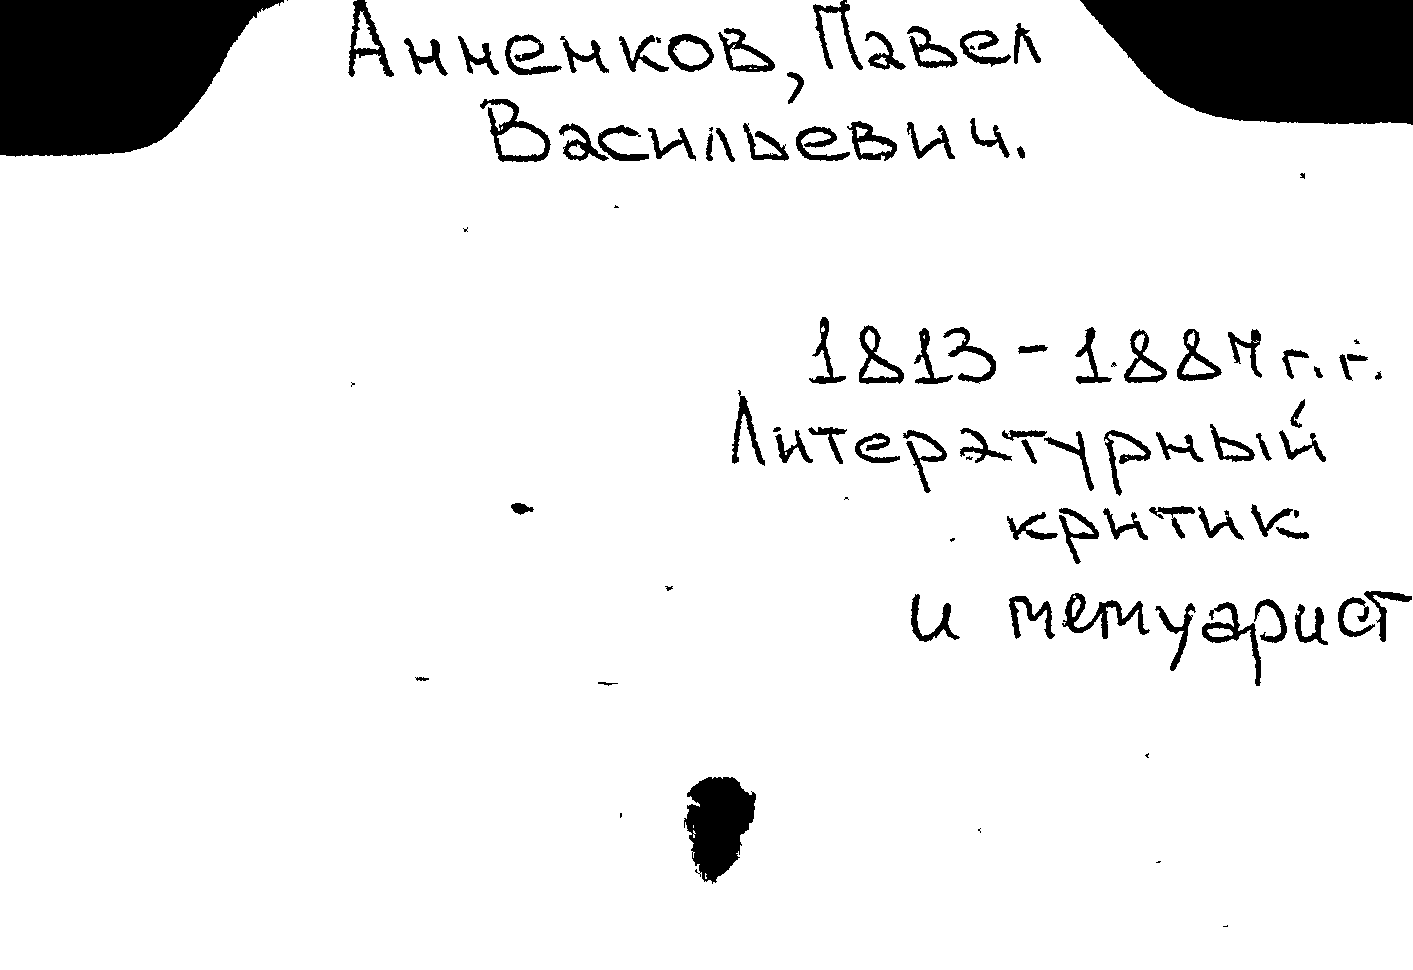 Анненков, Павел
Васильевич.
1813-1887 г.г.
Литературный
критик
и мемуарист